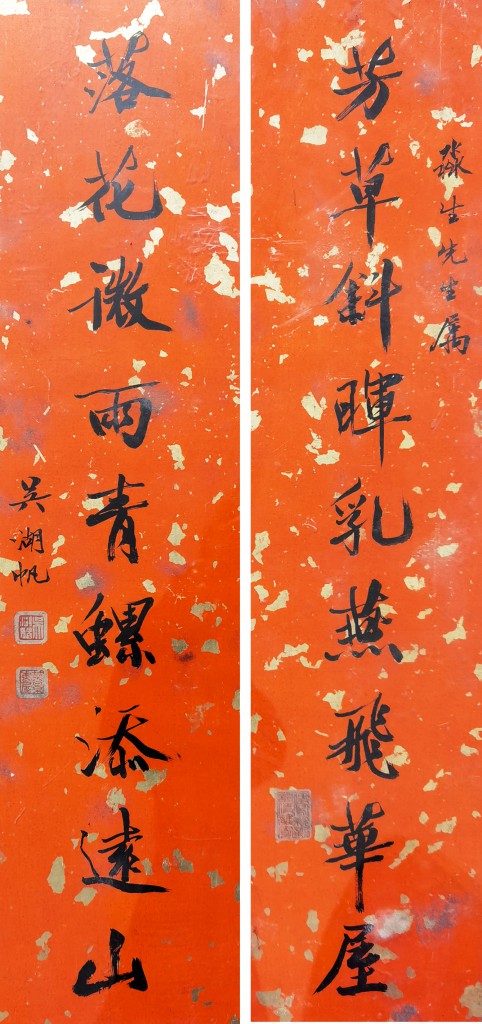 生先生属
芳草斜暉乳燕飛華屋
落花微雨青螺添遠山
吴湖帆